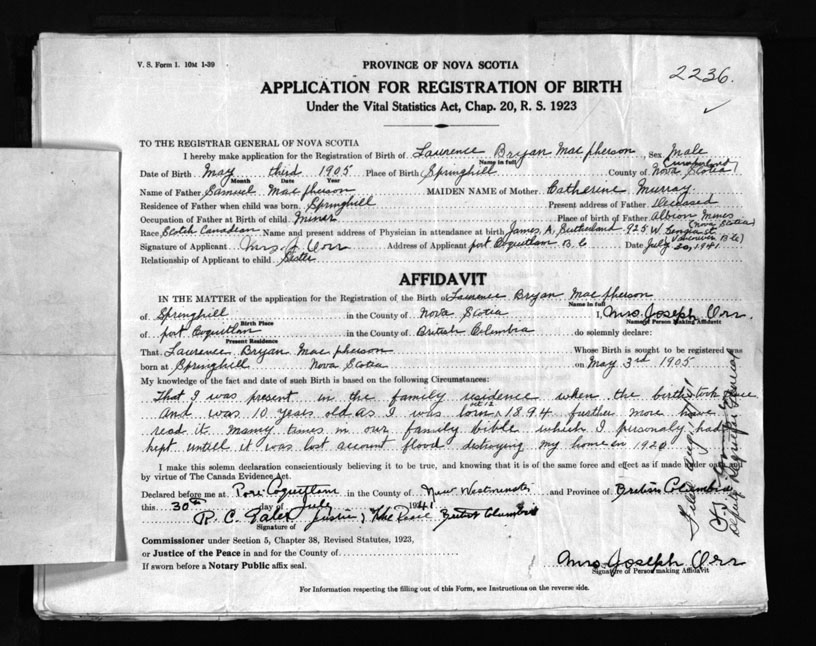 V. S. Form 1. 10M 1-39
PROVINCE OF NOVA SCOTIA
2236.
APPLICATION FOR REGISTRATION OF BIRTH
Under the Vital Statistics Act, Chap. 20, R. S. 1923
TO THE REGISTRAR GENERAL OF NOVA SCOTIA
I hereby make application for the Registration of Birth of Laurence Bryan Macpherson, Sex Male
Name in full
Cumberland
Date of Birth May third 1905 Place of Birth Springhill County of Nova Scotia
Month Date Year
Name of Father Samuel Macpherson MAIDEN NAME of Mother Catherine Murray
Residence of Father when child was born Springhill Present address of Father Deceased
Occupation of Father at Birth of child Miner Place of birth of Father Albion Mines
(Nova Scotia)
Race Scotch Canadian Name and present address of Physician in attendance at birth James, A, Sutherland 925 W. St
Vancouver B.C)
Signature of Applicant Mrs. J Orr Address of Applicant port Coquitlam B.C. Date July 30, 1941
Relationship of Applicant to child Sister
AFFIDAVIT
IN THE MATTER of the application for the Registration of the Birth of Laurence Bryan Macpherson
Name in full
of Springhill in the County of Nova Scotia I, Mrs Joseph Orr
Birth Place Name of Person Making Affidavit
of port Coquitlam in the County of British Columbia do solemnly declare:
Present Residence
That Laurence Bryan Macpherson Whose Birth is sought to be registered was
born at Springhill Nova Scotia on May 3rd 1905
My knowledge of the fact and date of such Birth is based on the following Circumstances:
That I was present in the family residence when the birth took place
oct 12
And was 10 years old as I was born 1894 further more have
read it many times in our family bible which I personaly had
kept untill it was lost account flood destroying my home in 1920
I make this solemn declaration conscientiously believing it to be true, and knowing that it is of the same force and effect as if made under oath
by virtue of The Canada Evidence Act.
Declared before me at Port Coquitlam in the County of New Westminster and Province of British Columbia
this 30th day of July 1941
R. C. Justice of the Peace British Columbia
Signature of
Commissioner under Section 5, Chapter 38, Revised Statutes, 1923,
or Justice of the Peace in and for the County of
If sworn before a Notary Public affix seal.
Mrs Joseph Orr
Signature of Person making Affidavit
For Information respecting the filling out of this Form, see Instructions on the reverse side.
Deputy Registrar General